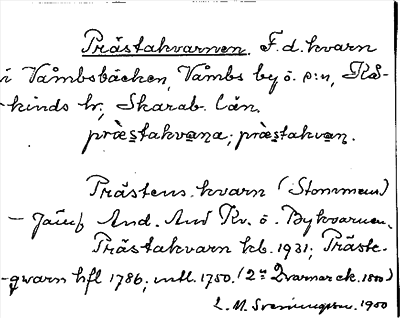 Prästakvarnen. F. d. kvarn
i Våmbsbäcken, Våmbs by o. s:n, Kå-
kinds hr, Skarab. län.
præstakvana; præstakvan.
Prästens kvarn (Stommens)
— Jämf And. And Kv. o. Bykvarnen.
Prästakvarn kb. 1931; Präste-
qwarn hfl 1786; mtl. 1750. (2ne Qvarnar ck. 1800)
L. M. Svenungsson. 1950